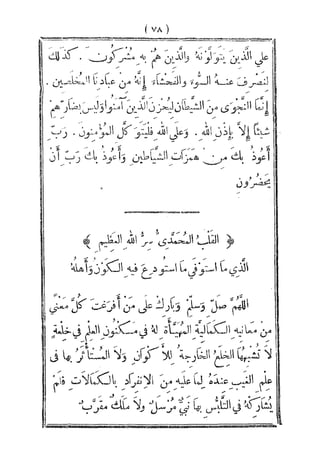 ( ٧٨ )
علي الَّذِينَ يَتَوَلَّوْنَهُ والَّذِينَ هُمْ بِهِ مُشْرِكُونَ . كَذلكَ
لِنَصْرِفَ عَنْهُ السُّوءَ والفَحْشَاءَ إِنَّهُ مِنْ عِبَادِنَا المُخْلَصِينَ .
إِنَّمَا النَّجْوَى مِنَ الشَّيطَانِ لِيُحْزِنَ الَّذِينَ آمَنُوا وَلَيْسَ بِضَارِّهِمْ
شَيْئًا إِلَّا بِإِذْنِ اللهِ . وَعَلَي اللهِ فَلْيَتَوَكَّلِ المُؤْمِنُونَ . رَبِّ
أَعُوذُ بِكَ مِنْ هَمَزَاتِ الشَّيَاطِينِ وَأَعُوذُ بِكَ رَبِّ أَنْ
يَحْضُرُونِ
﴿ القَلْبُ المُحَمَّدِيُّ سِرُّ اللهِ العَظِيمِ ﴾
الَّذِي مَا اسْتَوْفَي مَا اسْتُودِعَ فِيهِ الكَوْنُ وَأَهْلُهُ
اللَّهُمَّ صَلِّ وَسَلِّمْ وَبَارِكْ عَلَي مَنْ أَفْرَغْتَ كُلَّ مَعْنًي
مِنْ مَعَانِيهِ الكَمَالِيَّةِ المُهَيَّأَةِ لَهُ فِي مَكْنُونِ العِلْمِ فِي خِلْعَةٍ
لَا تُشْبِهُهَا الخِلَعُ الخَارِجَةُ لِلأَكْوَانِ وَلَا المُسْتَأْثَرُ بِهَا فِي
عِلْمِ الغَيْبِ عِنْدَهُ لِمَا عَلَيْهِ مِنَ الاِنْفِرَادِ بِالكَمَالَاتِ فَلَمْ
يُشَارِكْهُ فِي التَّلَبُّسِ بِهَا نَبِيٌّ مُرْسَلٌ وَلَا مَلَكٌ مُقَرَّبٌ